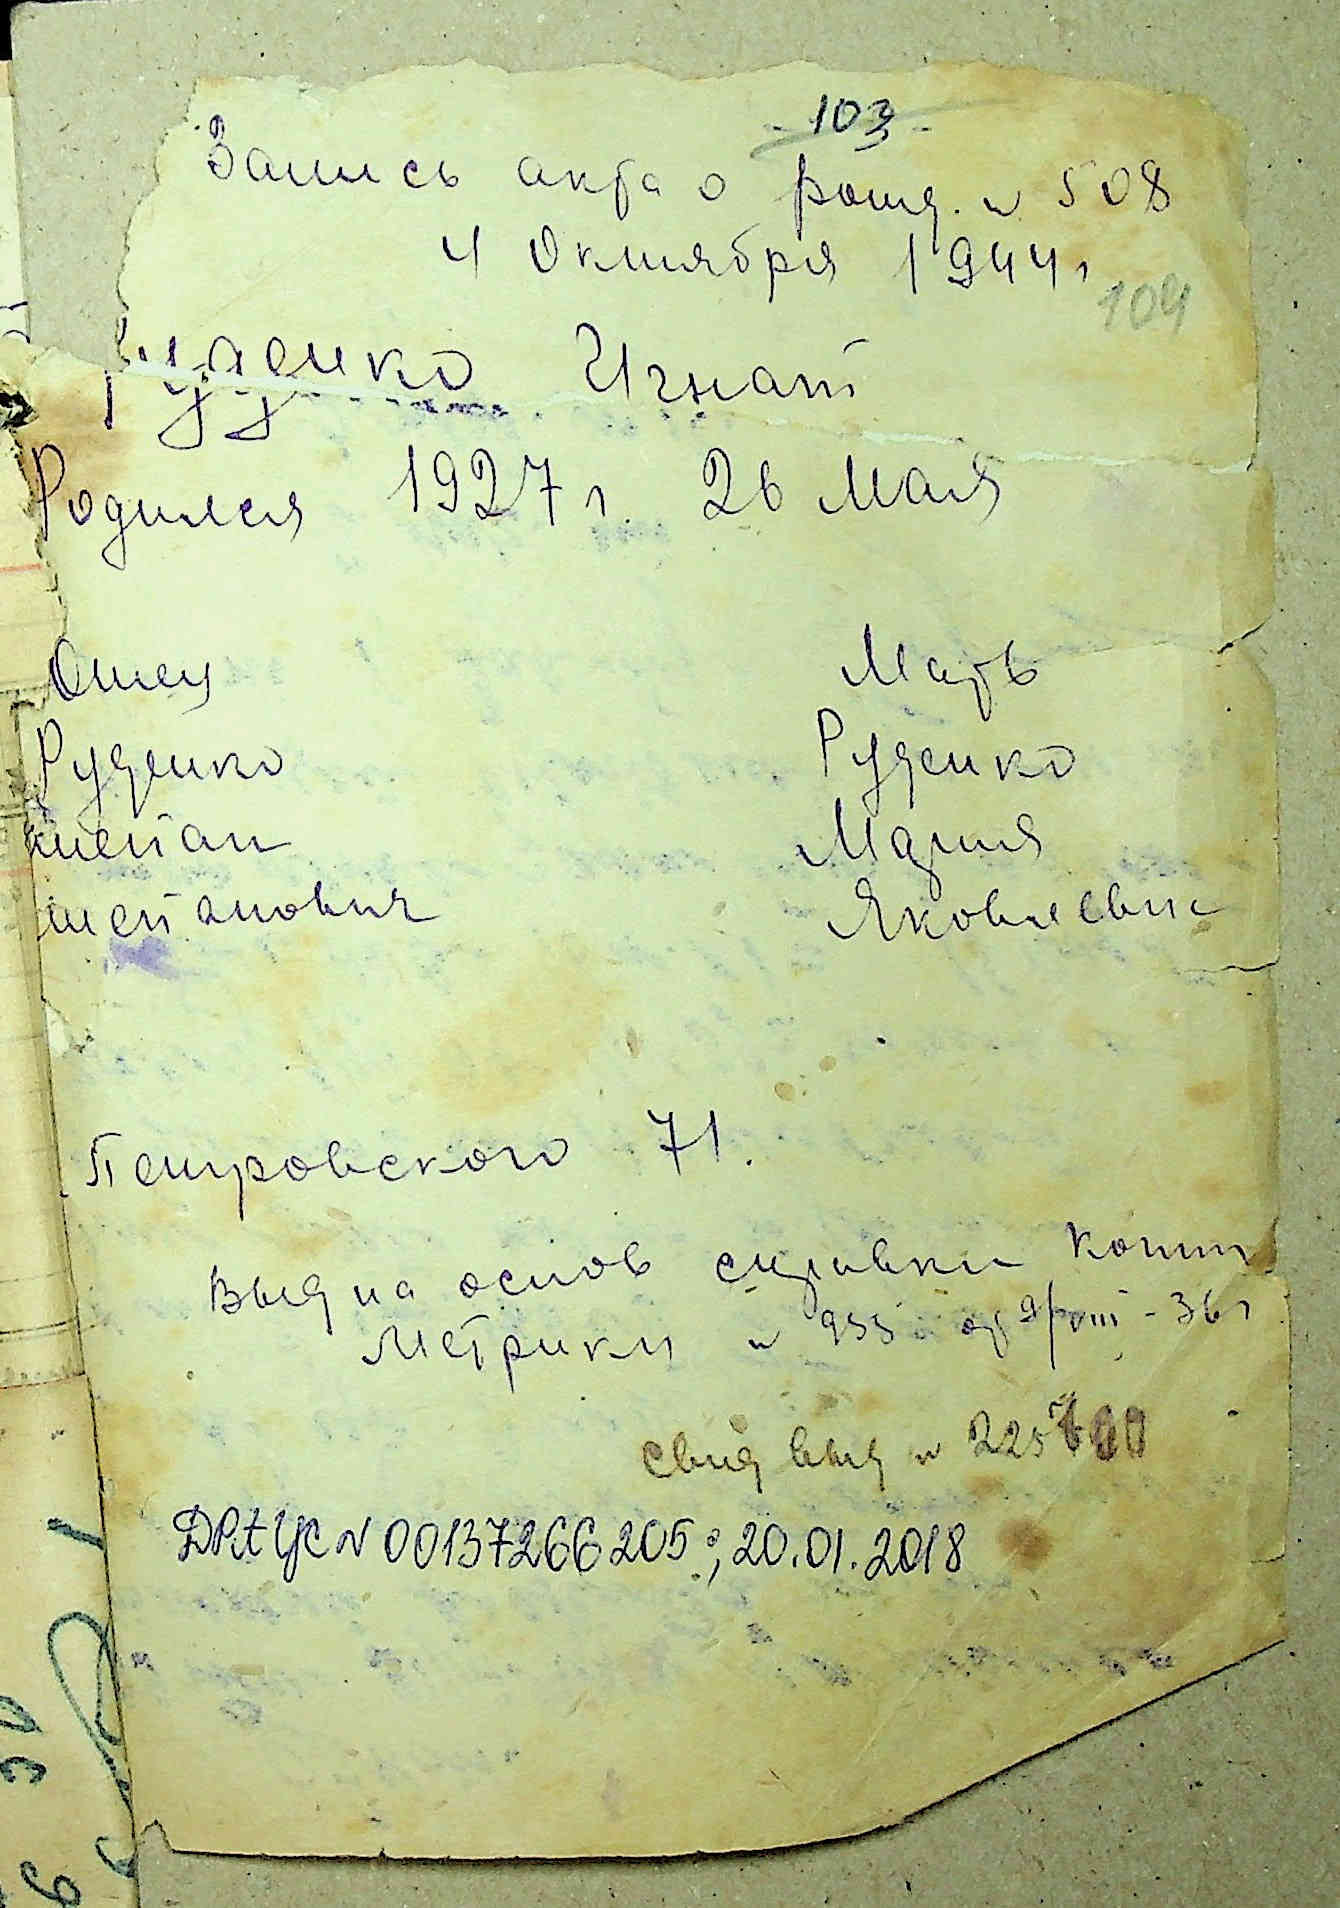 103
Запись акта о рожд. N 508
4 Октября 1944 г
104
Руденко Игнат
Родился 1927 г. 26 Мая
Отец Мать
Руденко Руденко
Степан Мария
Степанович Яковлевна
Петровского 71.
Выд на основ справки Копии
Метрики N 933 от 9/VIII - 36 г
Свид выд N
ДРАЦС N 00137266205; 20.01.2018